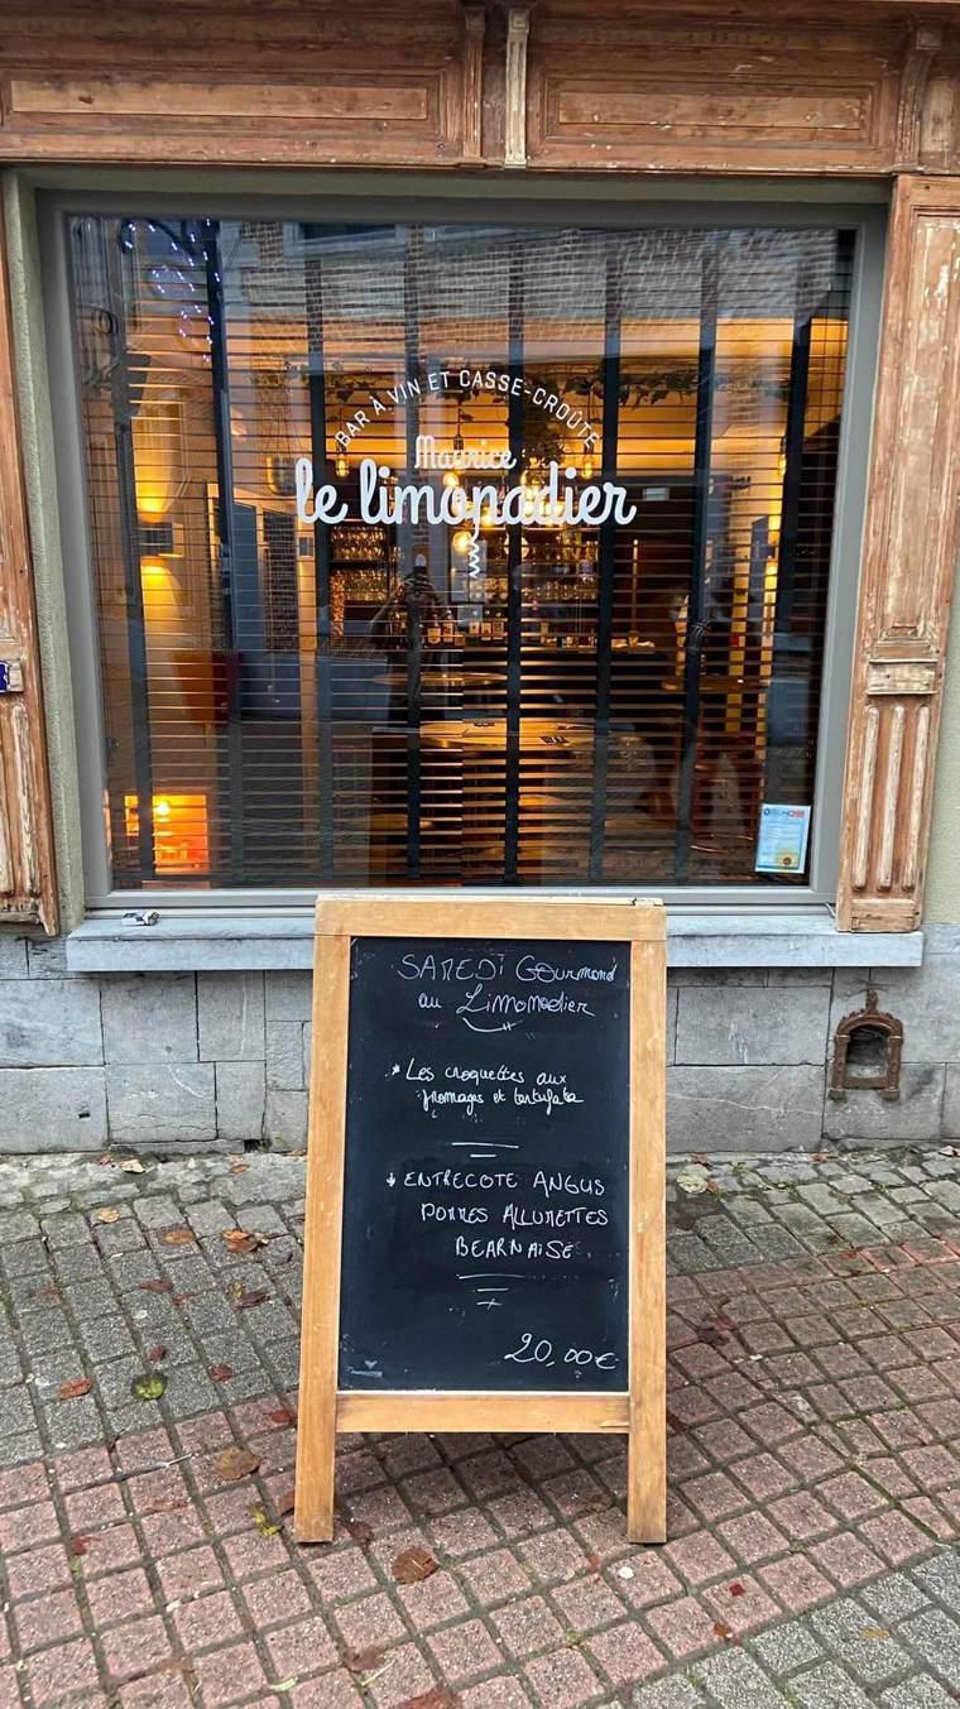 BAR À VIN ET CASSE-CROÛTE
Maurice
le limonadier
SAMEDI GOurmand
au Limonadier
* Les croquettes aux
fromages et tartufata
* ENTRECOTE ANGUS
POMMES ALLUMETTES
BEARNAISE.
20,00€